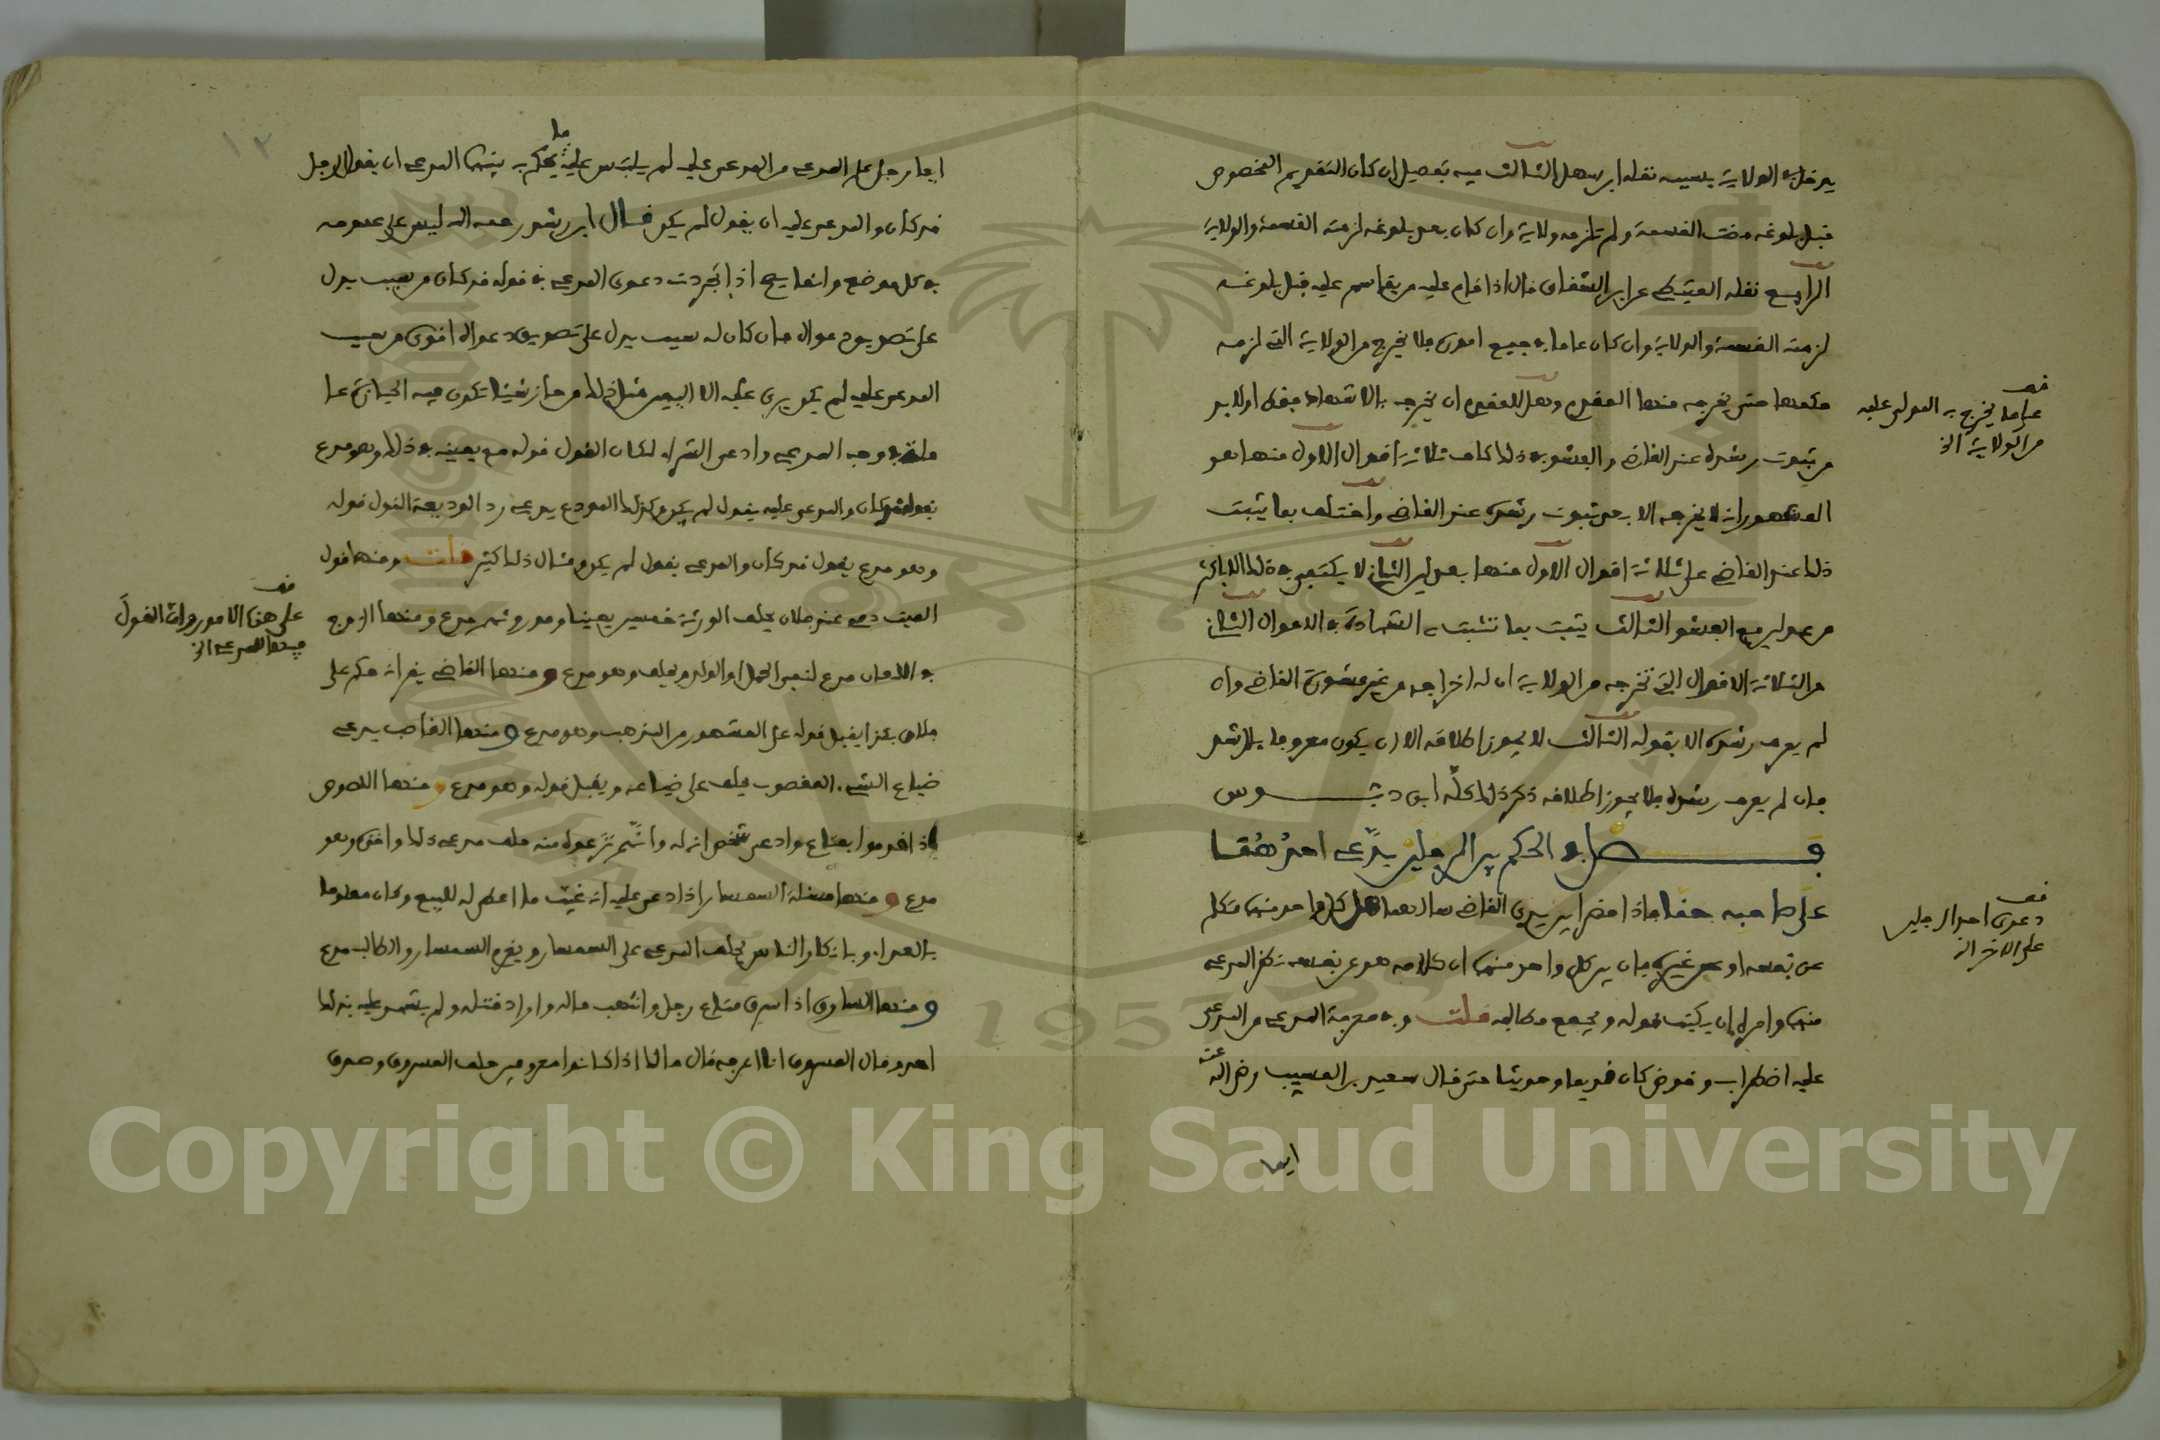 يدخل به الولاية بسببه نقله ابن سهل الثالث فيه تفصيل ان كان التقديم المخصوص
قبل بلوغه مضت القسمة ولم تلزمه ولاية وان كان بعد بلوغه لزمته القسمة والولاية
الرابع نقله المتيطي عن ابن الشقاق قال اذا قدم عليه من يقاسم عليه قبل بلوغه
لزمته القسمة والولاية وان كان عاما في جميع اموره فلا يخرج من الولاية التي لزمه
حكمها حتى يخرجه منها المقدم وهل للمقدم ان يخرجه بالاشهاد فقط او لابد
من ثبوت رشده عند القاضي والعمل في ذلك على ثلاثة اقوال الاول منها هو
المشهور انه لا يخرجه الا بعد ثبوت رشده عند القاضي واختلف بما يثبت
ذلك عند القاضي على ثلاثة اقوال الاول منها بعدلين الثاني لا يكتفى في ذلك
من عدلين مع الفشو الثالث يثبت بما تثبت به الشهادة في الاموال الثاني
من الثلاثة الاقوال التي تخرجه من الولاية ان له اخراجه من غير مشورة القاضي وان
لم يعرف رشده الا بقوله الثالث لا يجوز اطلاقه الا ان يكون معروفا بالرشد
فان لم يعرف رشده فلا يجوز اطلاقه ذكر ذلك كله ابن دبوس
فصل في الحكم بين الرجلين يدعي احدهما
على صاحبه حقا فاذا حضرا بين يدي القاضي سالهما هل كل واحد منهما تكلم
عن نفسه او عن غيره فان بين كل واحد منهما ان كلامه هو عن نفسه نظر المدعي
منهما وامر ان يكتب قوله ويجمع مطالبه قلت وفي معرفة المدعي من المدعى
عليه اضطراب وغموض كان قديما وحديثا حتى قال سعيد بن المسيب رضي الله عنه
ايما
فصل
على ما يخرج به المولى عليه
من الولاية الخ
فصل
دعوى احد الرجلين
على الاخر الخ
١٢
ايما رجل علم المدعي من المدعى عليه لم يلتبس عليه ما يحكم به بينهما المدعي ان يقول الرجل
قد كان والمدعى عليه ان يقول لم يكن قال ابن رشد رحمه الله ليس على عمومه
في كل موضع وانما يصح اذا تجردت دعوى المدعي في قوله قد كان من سبب يدل
على تصديق دعواه فان كان له سبب يدل على تصديق دعواه اقوى من سبب
المدعى عليه لم يكن يبدى عليه الا اليمين مثل ذلك من حاز شيئا تكون فيه الحيازة عا
ملة في وجه المدعي وادعى الشراء لكان القول قوله مع يمينه في ذلك وهو مدع
يقول قد كان والمدعى عليه يقول لم يكن وكذلك المودع يدعي رد الوديعة القول قوله
وهو مدع يقول قد كان والمدعي يقول لم يكن ومثال ذلك كثير قلت ومنها قول
الميت دمي عند فلان يحلف الورثة خمسين يمينا وهو مدع ومنها الزوج
في اللعان مدع لنفي الحمل او الولد ويحلف وهو مدع ومنها القاضي يقر انه حكم على
فلان بكذا يقبل قوله على المشهور من المذهب وهو مدع ومنها الغاصب يدعي
ضياع الشيء المغصوب يحلف على ضياعه ويقبل قوله وهو مدع ومنها اللصوص
اذا قدموا بمتاع وادعى شخص انه له وانهم نزعوه منه حلف مدعي ذلك واخذه وهو
مدع ومنها مسئلة السمسار اذا ادعى عليه انه غيب ما اعطي له للبيع وكان معلوما
بالعداء وبانكار الناس يحلف المدعي على السمسار ويغرم السمسار والطالب مدع
ومنها السارق اذا سرق متاع رجل وانتهب ماله واراد قتله ولم يشهد عليه بذلك
احد وقال المسروق انا اعرفه قال مالك اذا كانوا معروفين حلف المسروق وصدق
فصل
على هذا الامور وان القول
فيها للمدعي الخ
Copyright © King Saud University
1957